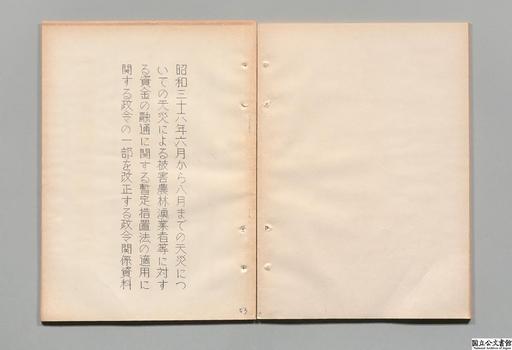 昭和三十六年六月から八月までの天災につ
いての天災による被害農林漁業者等に対す
る資金の融通に関する暫定措置法の適用に
関する政令の一部を改正する政令関係資料
53
国立公文書館
National Archives of Japan